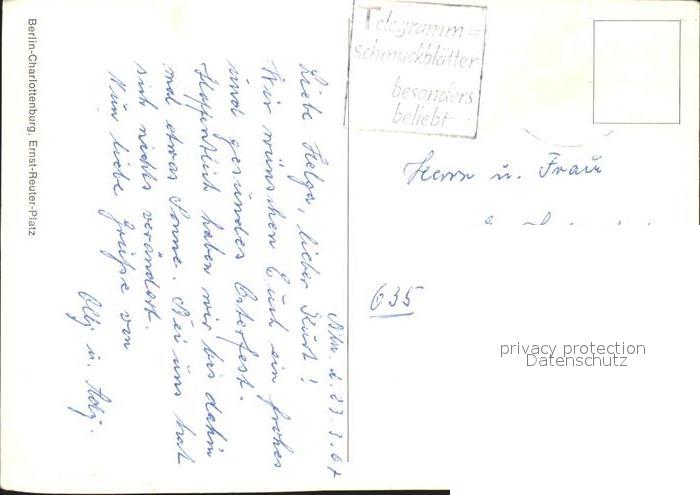 Berlin-Charlottenburg, Ernst-Reuter-Platz
Telegramm=
schmuckblätter
besonders
beliebt
Bln. d. 23.3.67
Liebe Helga, lieber Kurt!
Wir wünschen Euch ein frohes
und gesundes Osterfest.
Hoffentlich haben wir bis dahin
mal etwas Sonne. Bei uns hat
sich nichts verändert.
Nun liebe Grüße von
u.
Herrn u. Frau
635
privacy protection
Datenschutz